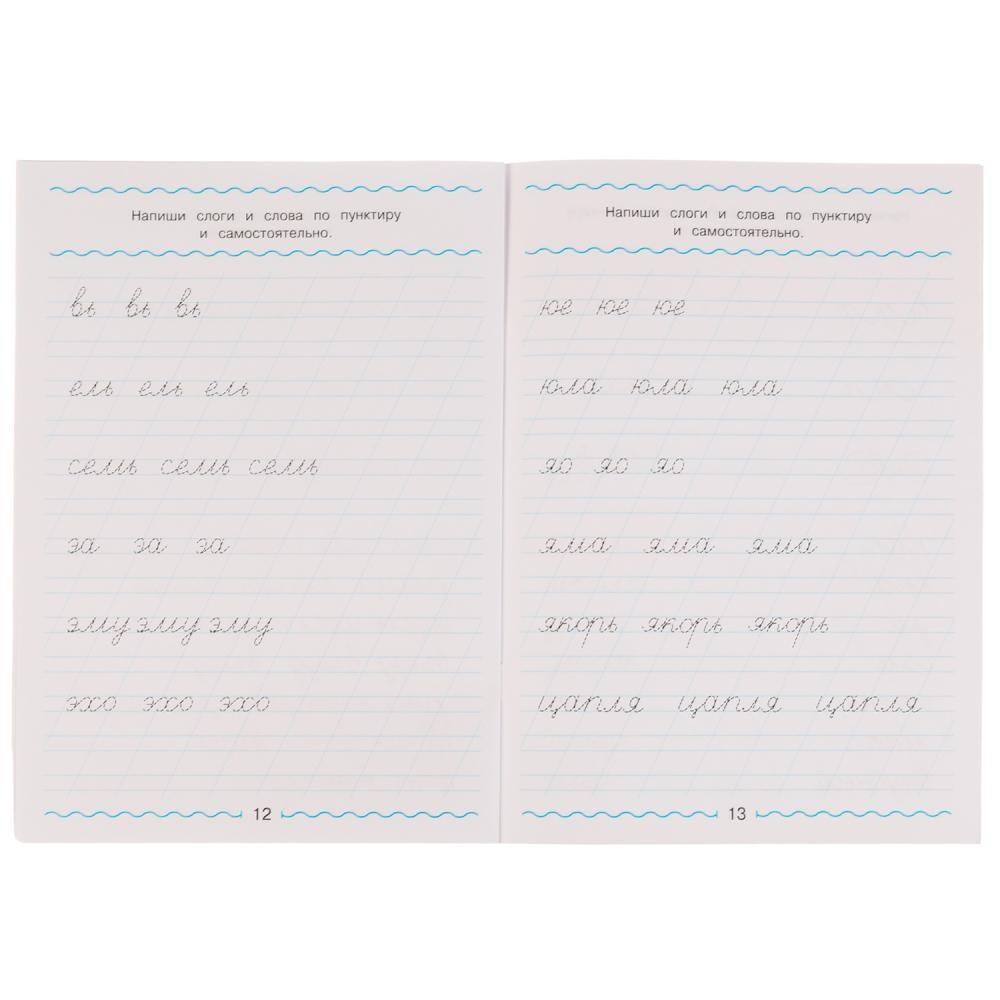 Напиши слоги и слова по пунктиру
и самостоятельно.
вь вь вь
ель ель ель
семь семь семь
за за за
эму эму эму
эхо эхо эхо
12
Напиши слоги и слова по пунктиру
и самостоятельно.
юе юе юе
юла юла юла
яо яо яо
яма яма яма
якорь якорь якорь
цапля цапля цапля
13